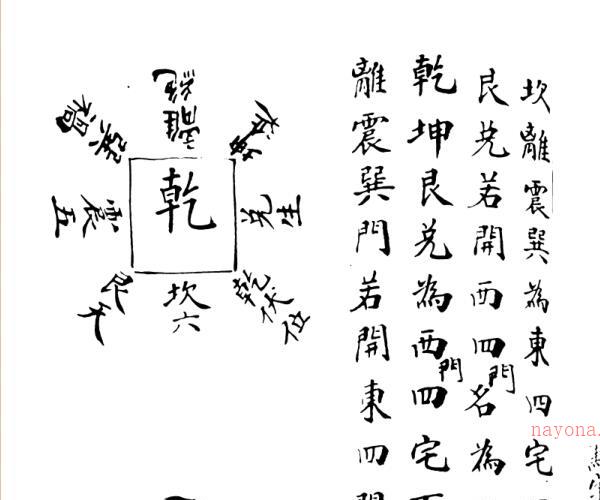 坎離震巽為東四宅
艮兌若開西四門名為
乾坤艮兌為西門四宅
離震巽門若開東四
乾
離絕
兌生
乾伏位
坎六
艮天
震五
巽禍
nayona.